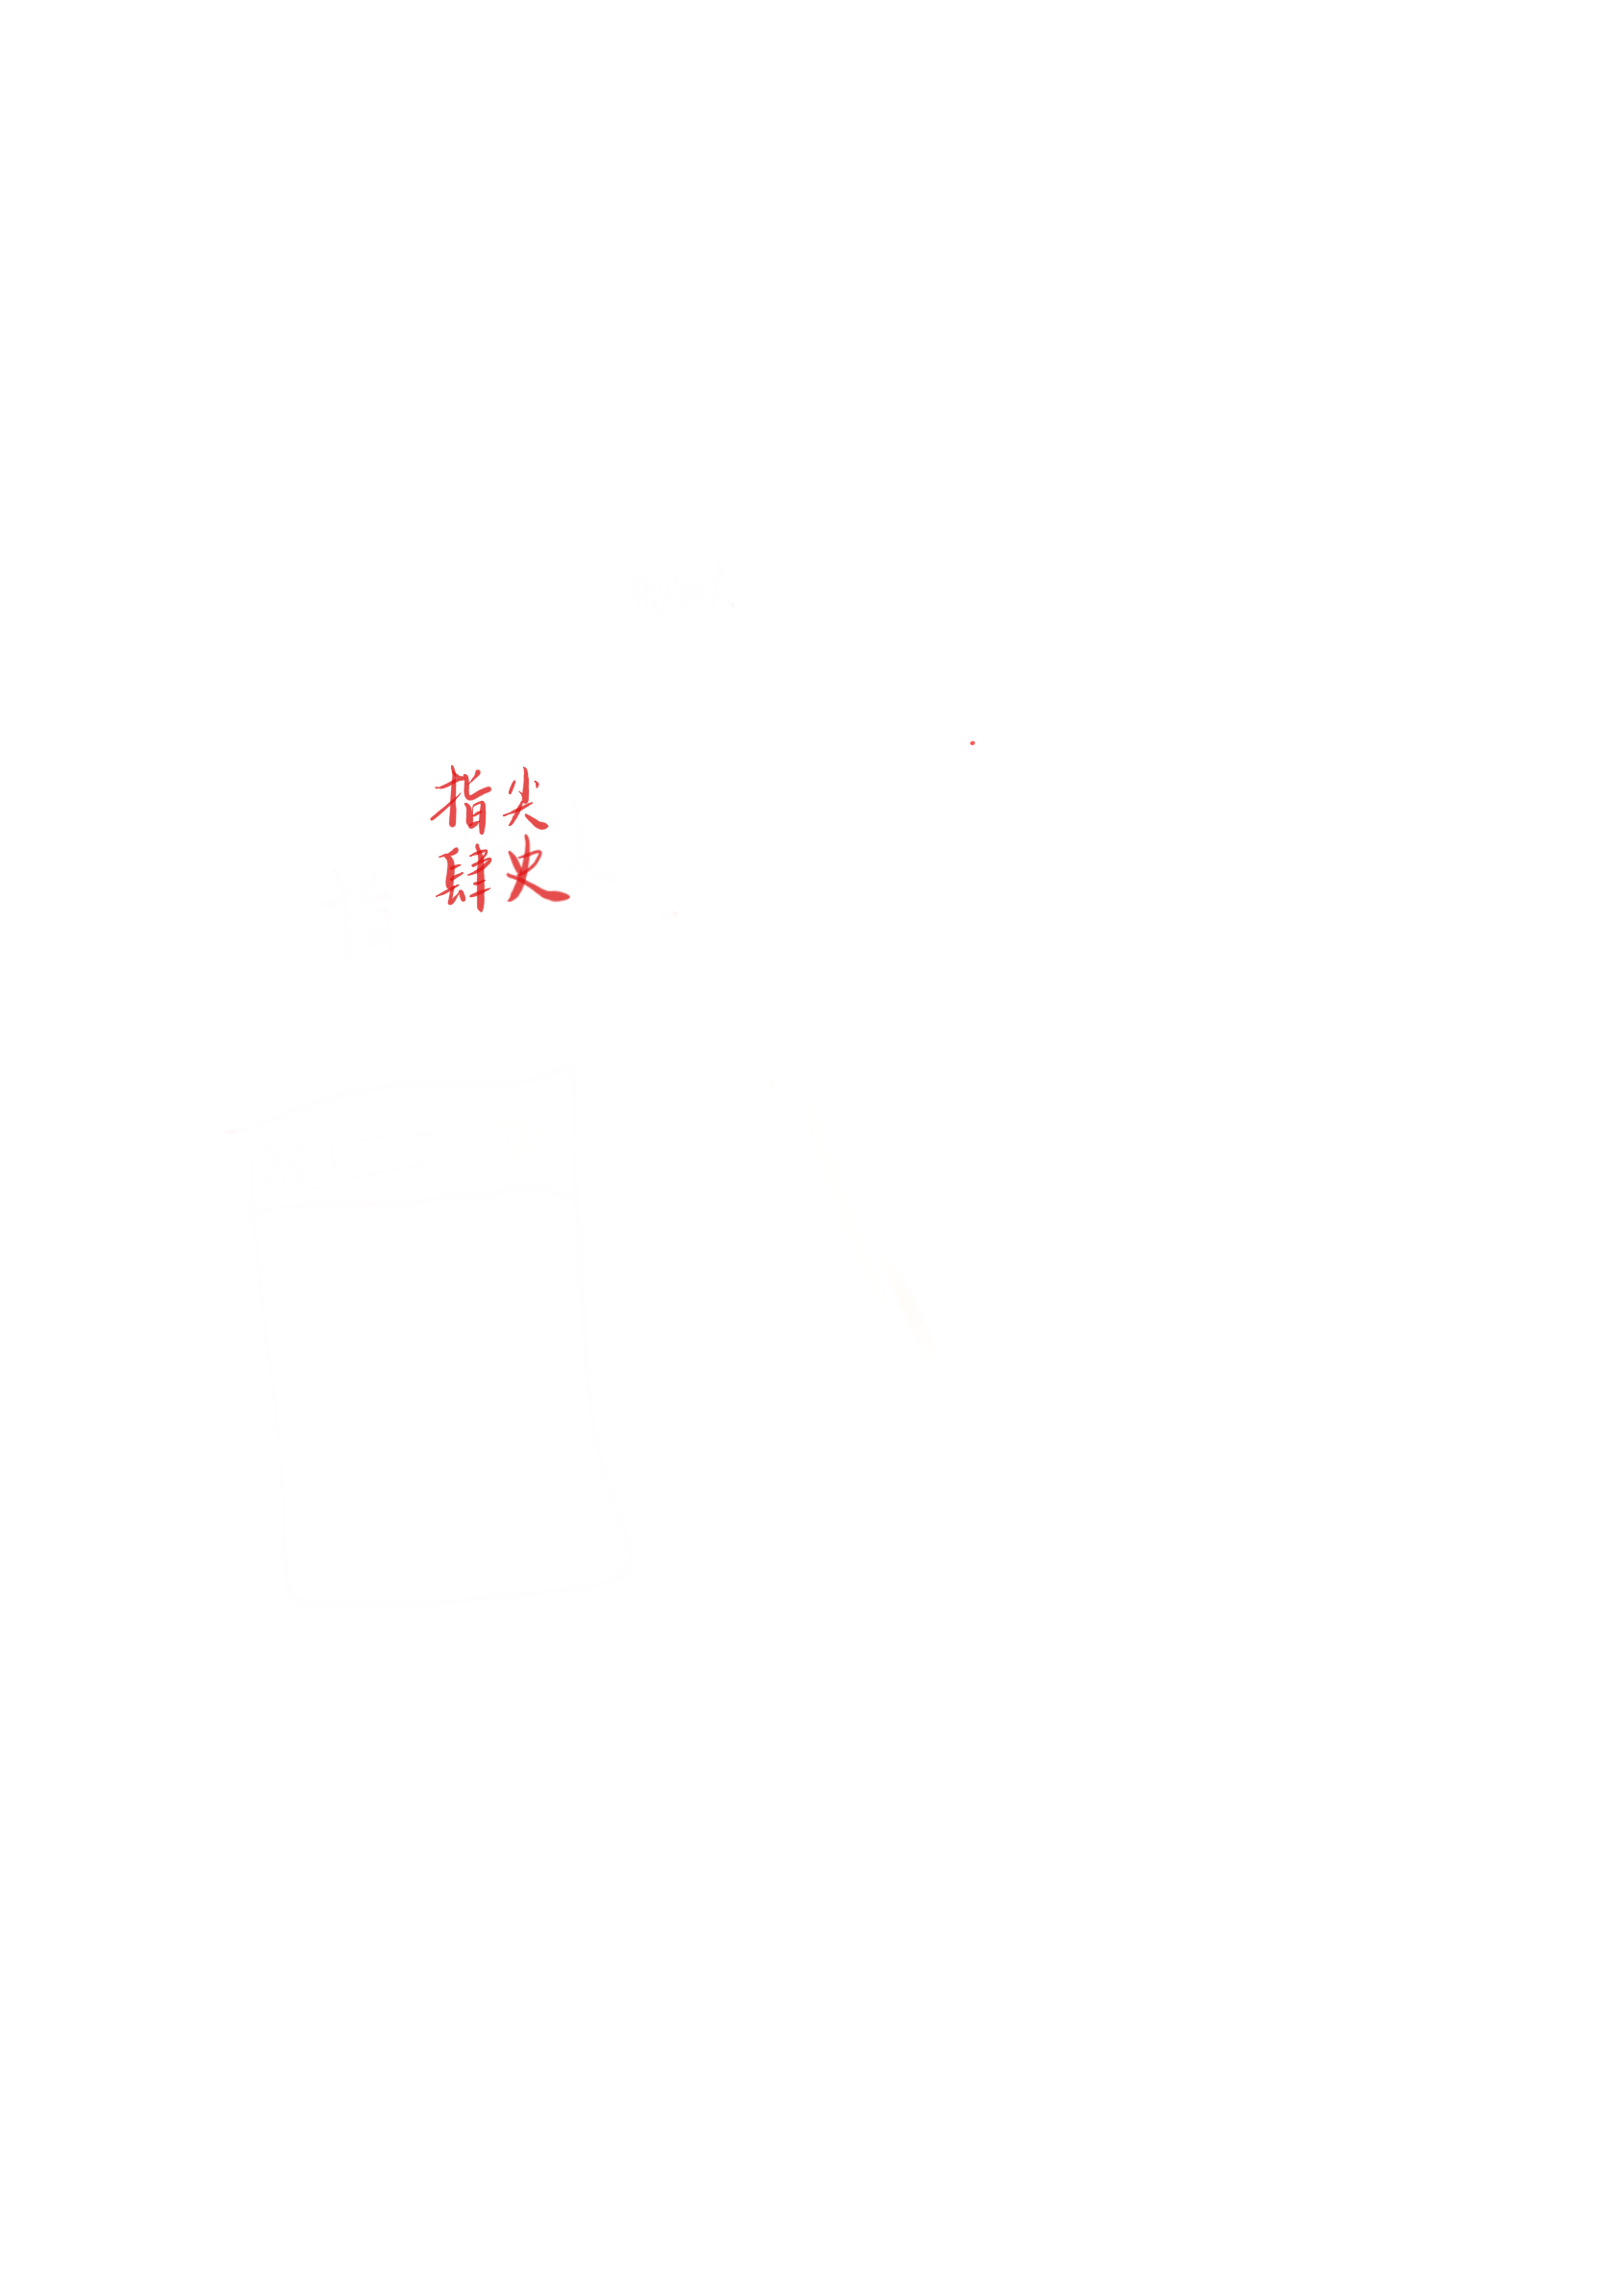 指尖
肆史